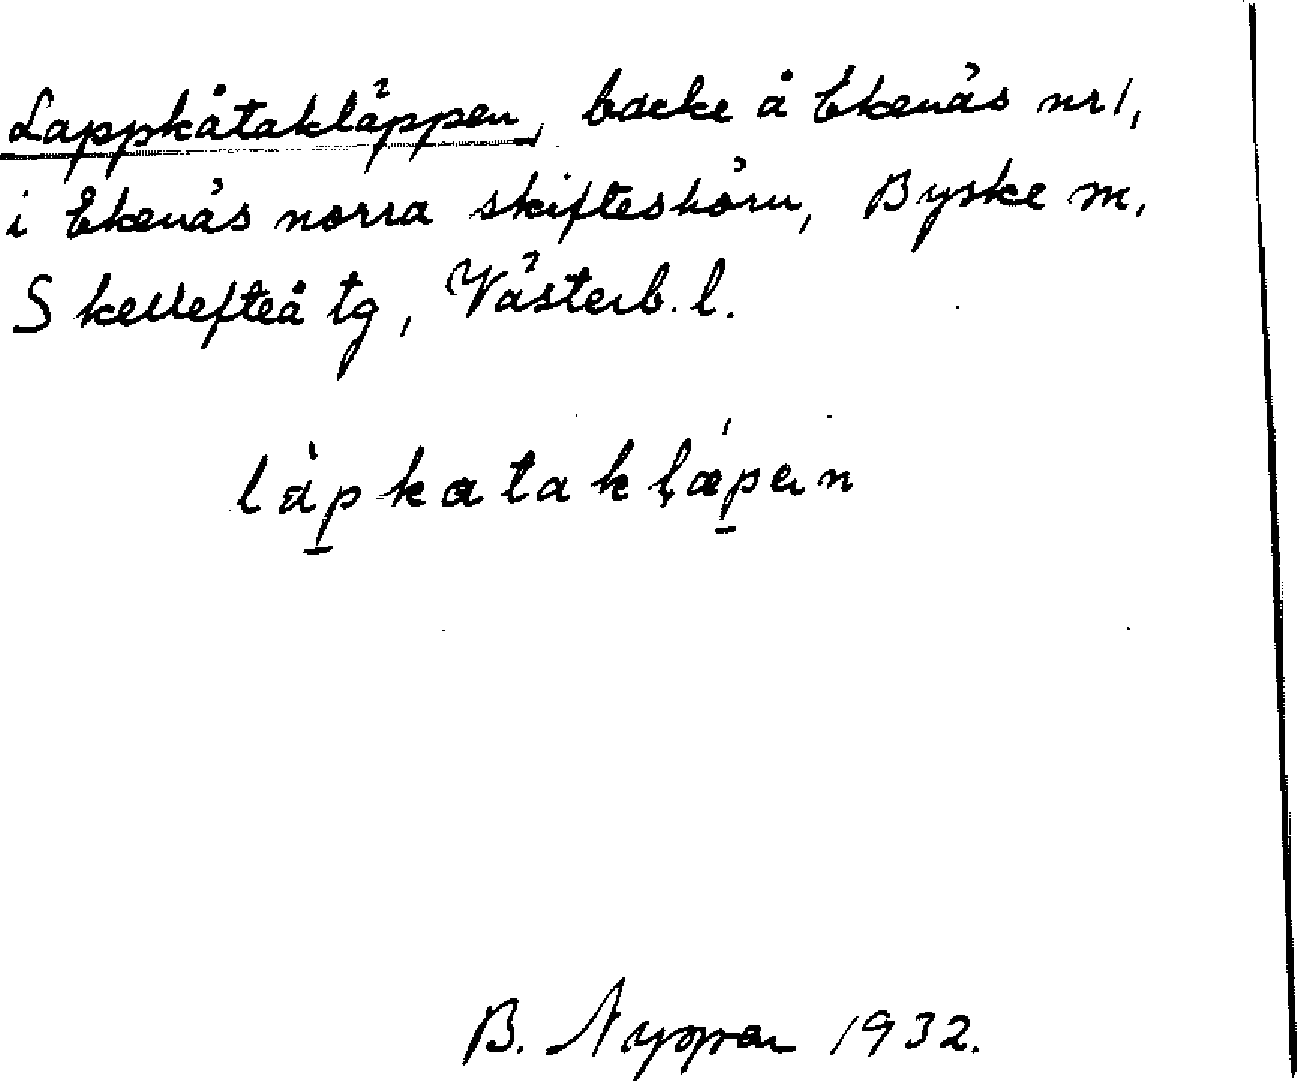 Lappkåtakläppen, backe å Ekenäs nr 1,
i Ekenäs norra skifteshörn, Byske sn,
Skellefteå tg, Västerb. l.
làpkatakḷǽpen
B. Nyppen 1932.